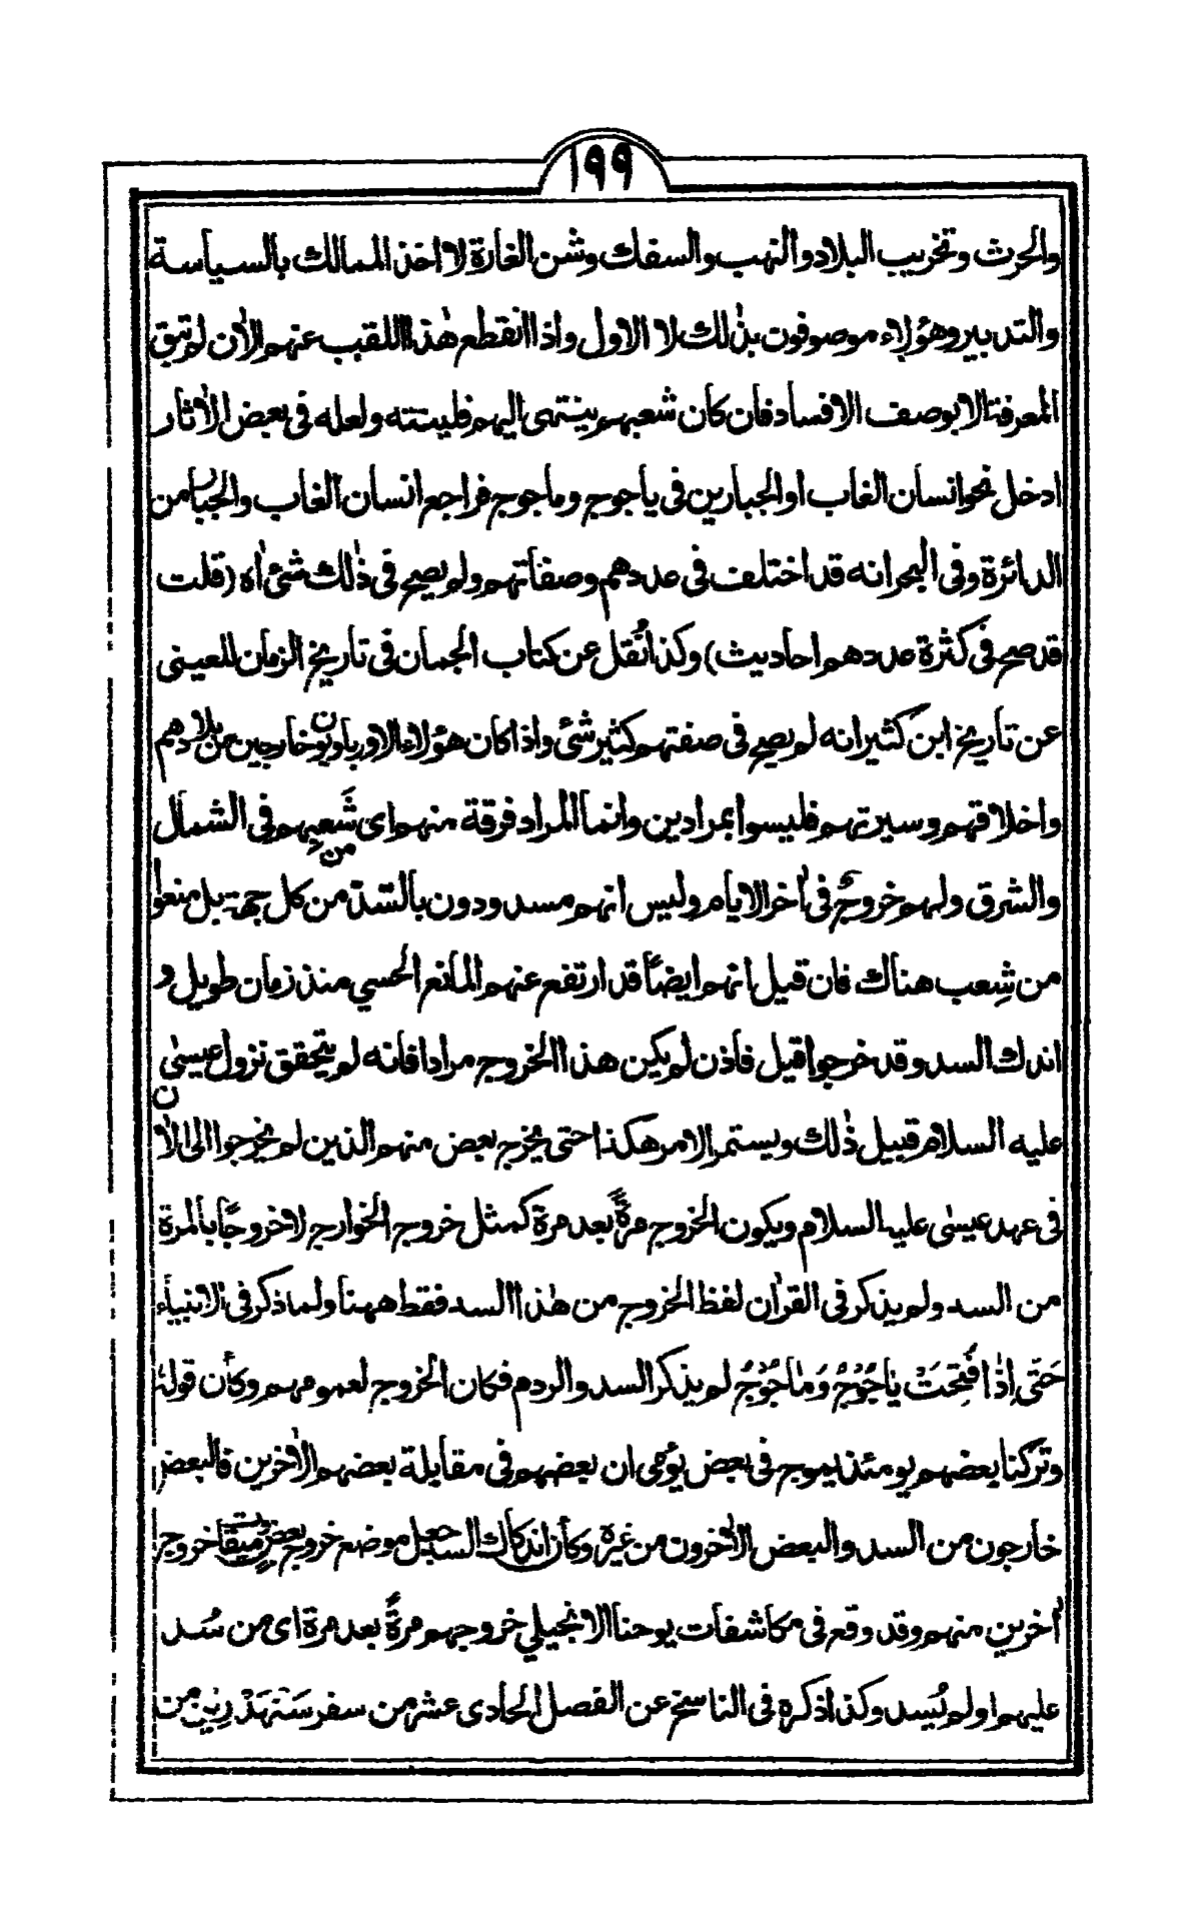 ١٩٩
والحرث وتخريب البلاد والنهب والسفك وشن الغارة لا اخذ الممالك بالسياسة
والتدبير وهؤلاء موصوفون بذٰلك لا الاول واذا انقطع هٰذا اللقب عنهم الاٰن لم تبق
المعرفة الا بوصف الافساد فان كان شعبهم ينتهى اليهم فلينته ولعله فى بعض الاٰثار
ادخل نحو انسان الغاب او الجبارين فى يأجوج وماجوج فراجع انسان الغاب والجبار من
الدائرة وفى البحر انه قد اختلف فى عددهم وصفاتهم ولم يصح فى ذٰلك شئ اٰه (قلت
قد صح فى كثرة عددهم احاديث) وكذا نُقل عن كتاب الجمان فى تأريخ الزمان للعينى
عن تأريخ ابن كثير انه لم يصح فى صفتهم كثير شئ واذا كان هؤلاء الاورباويون خارجين من بلادهم
واخلاقهم وسيرتهم فليسوا بمرادين وانما المراد فرقة منهم اى شَعبِهم فى الشمال
والشرق ولهم خروج فى اٰخر الايام وليس انهم مسدودون بالسّد من كل جهة بل منعوا
من
من شِعب هناك فان قيل انهم ايضاً قد ارتفع عنهم المانع الحسي منذ زمان طويل و
اندك السد وقد خرجوا قيل فأذن لم يكن هذا الخروج مرادا فانه لم يتحقق نزول عيسٰى
عليه السلام قبيل ذٰلك ويستمر الامر هكذا حتى يخرج بعض منهم الذين لم يخرجوا الى الاٰن
فى عهد عيسٰى عليه السلام ويكون الخروج مرةً بعد مرة كمثل خروج الخوارج لا خروجًا بالمرة
من السد ولم يذكر فى القراٰن لفظ الخروج من هٰذا السد فقط ههنا ولما ذكر فى الانبياء
حَتّى اِذٰا فُتِحَتْ يٰأجُوْجُ وَمٰأجُوْجُ لم يذكر السد والردم فكان الخروج لعمومهم وكأن قوله
وتركنا بعضهم يومئذ يموج فى بعض يوُمى ان بعضهم فى مقابلة بعضهم الاٰخرين فالبعض
خارجون من السد والبعض الاٰخرون من غيره وكأن اندكاك السد جعل موضع خروج بعض وميقات خروج
اٰخرين منهم وقد وقع فى مكاشفات يوحنا الانجيلي خروجهم مرةً بعد مرة اى من سُد
عليهم او لم يُسد وكذا ذكره فى الناسخ عن الفصل الحادى عشر من سفر سَنْهَذْرِيْن من